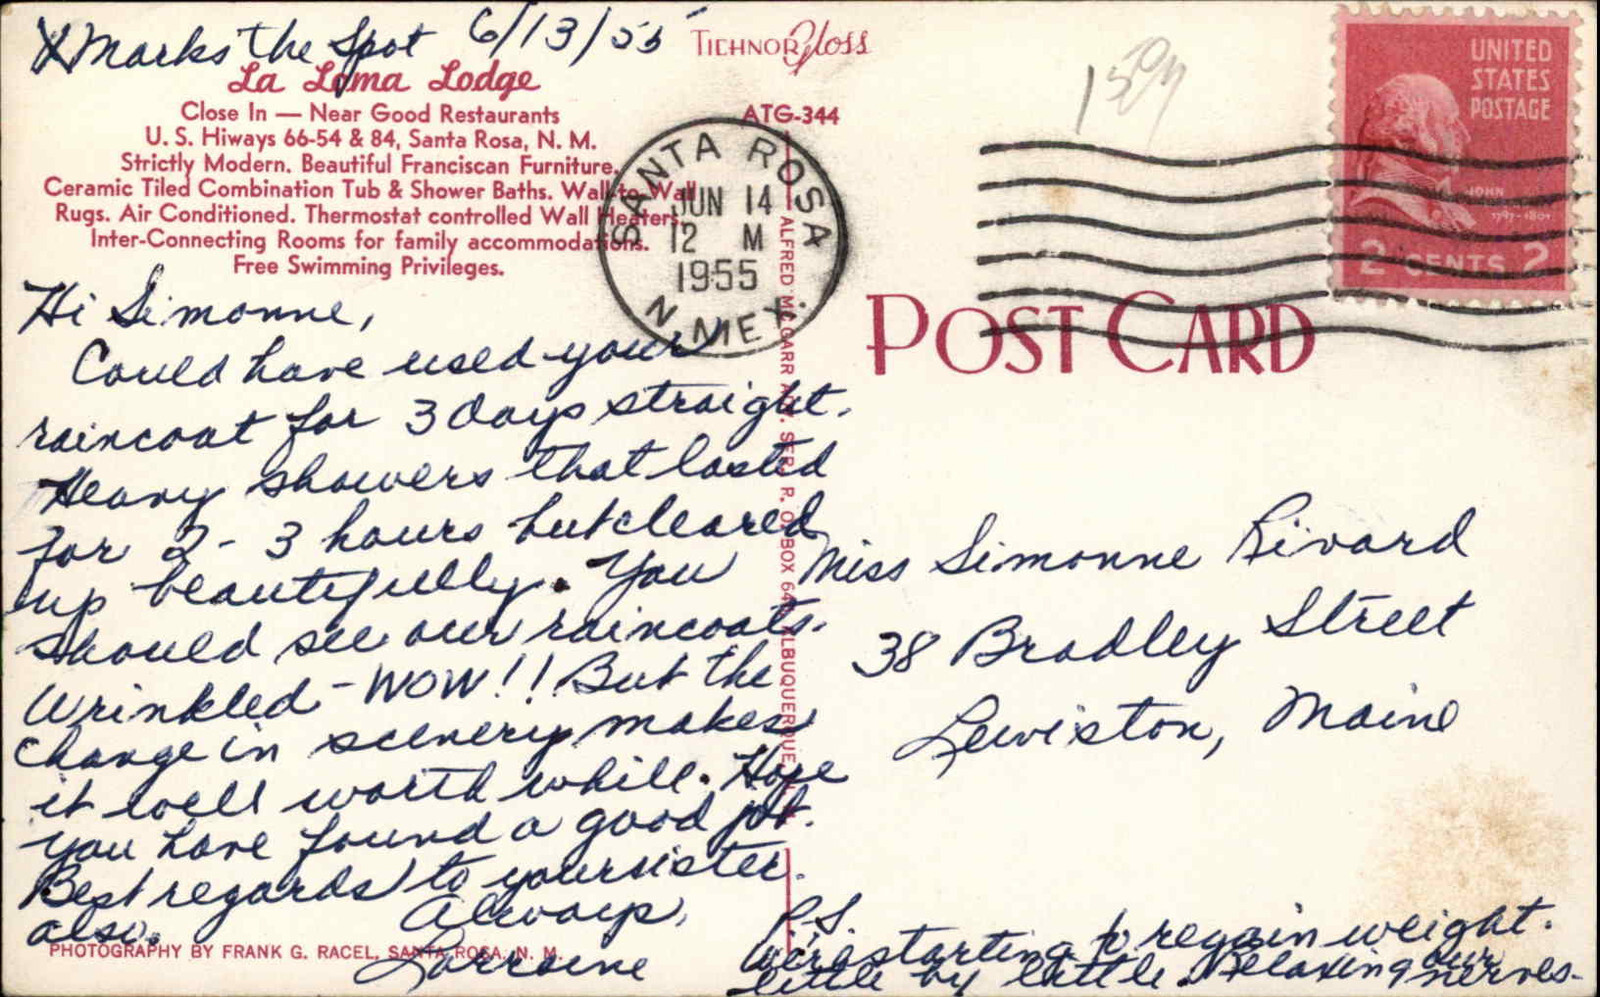 X Marks the Spot 6/13/55
La Loma Lodge
Close In — Near Good Restaurants
U. S. Hiways 66-54 & 84, Santa Rosa, N. M.
Strictly Modern. Beautiful Franciscan Furniture.
Ceramic Tiled Combination Tub & Shower Baths. Wall to Wall
Rugs. Air Conditioned. Thermostat controlled Wall Heaters.
Inter-Connecting Rooms for family accommodations.
Free Swimming Privileges.
Hi Simonne,
Could have used your
raincoat for 3 days straight.
Heavy showers that lasted
for 2-3 hours but cleared
up beautifully. You
should see our raincoats.
Wrinkled - WOW!! But the
change in scenery makes
it well worth while. Hope
you have found a good job.
Best regards to your sister
also.
Always,
Lorraine
P.S.
We're starting to regain weight.
little by little. Relaxing our nerves.
PHOTOGRAPHY BY FRANK G. RACEL, SANTA ROSA, N. M.
TICHNOR Gloss
ATG-344
ALFRED MC GARR ADV. SER. P. O. BOX 64 ALBUQUERQUE,
SANTA ROSA
JUN 14
12 M
1955
N. MEX.
UNITED
STATES
POSTAGE
JOHN
1797-1801
2 CENTS 2
POST CARD
Miss Simonne Rivard
38 Bradley Street
Lewiston, Maine